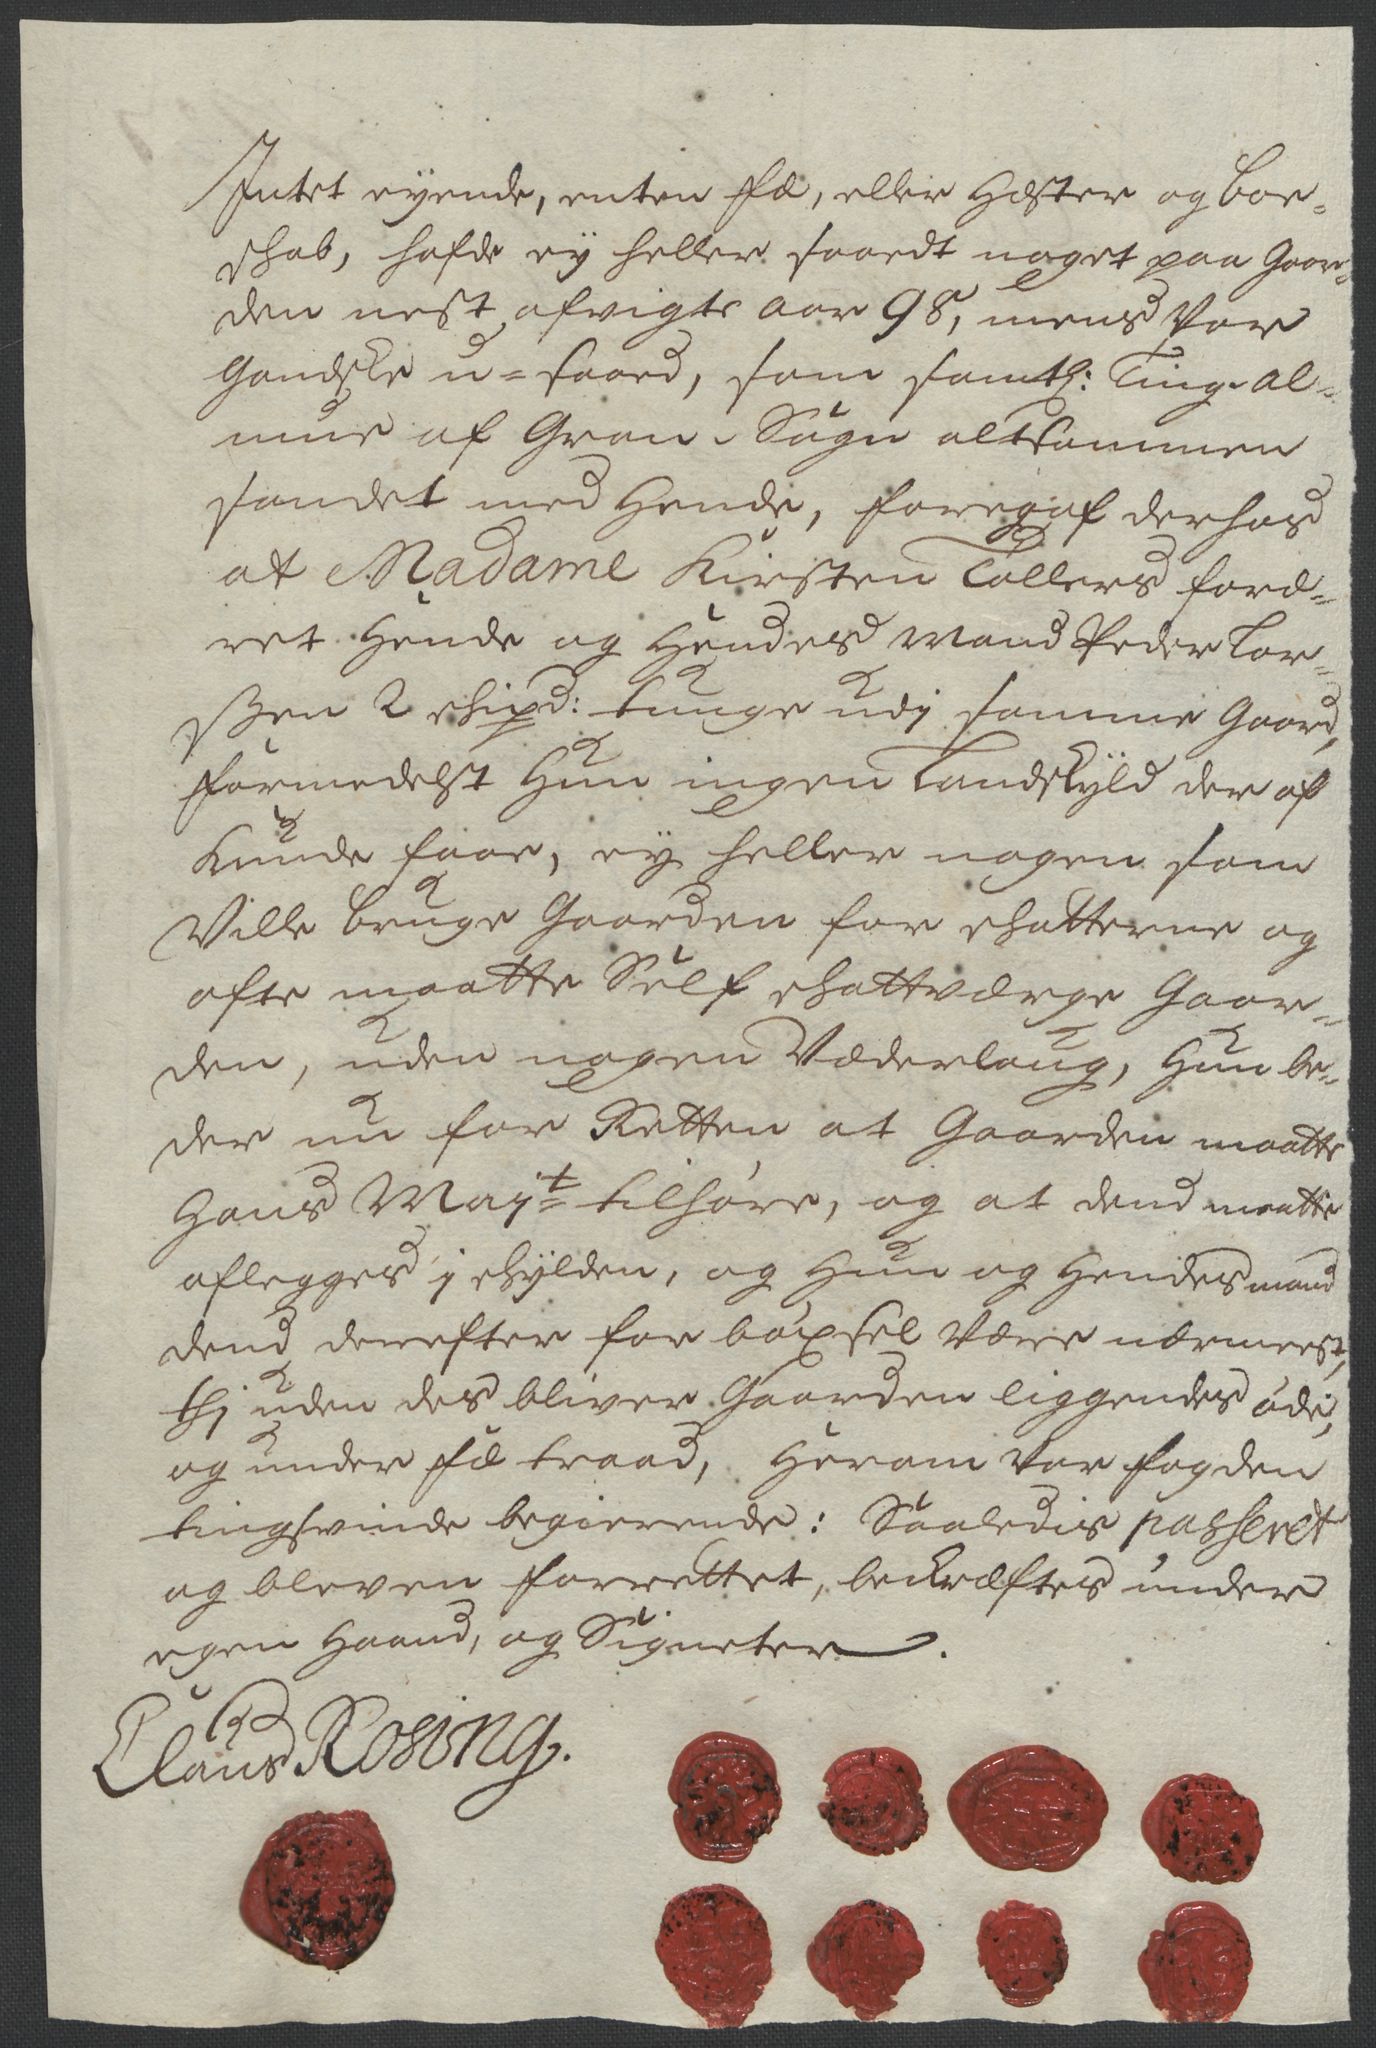 Intet eyende, enten fæ, eller Hæster og boe-
schab, hafde ey heller saaedt noget paa Gaar-
den nest afvigte aar 98, mens Var
Gandske u-saaed, som samtl: Ting-Al-
mue af Gran-Sogn altsammen
sandet med Hende, foregaf derhos
at Madame Kirsten Tollers ford-
ret Hende og Hendes Mand Peder Lar-
ßen 2 schipd: tunge udj samme Gaard,
formedelst Hun ingen Landskyld der af
Kunde faae, ey heller nogen som
Ville bruge Gaarden for schatterne og
ofte maatte Self schattværge Gaar-
den, uden nogen Vederlaug, Hun be-
der nu for Retten at Gaarden maatte
Hans Mayt tilhøre, og at dend maatte
aflegges j schylden, og Hun og Hendes mand
dend derefter for böxsel Være nærmest,
thj uden des bliver Gaarden liggendes øde,
og under fæ traad, Herom var fogden
tingsvinde begierende: Saaledis passeret
og bleven forrettet, bekræftes under
egen Haand, og Signeter.
Claus Rosing.